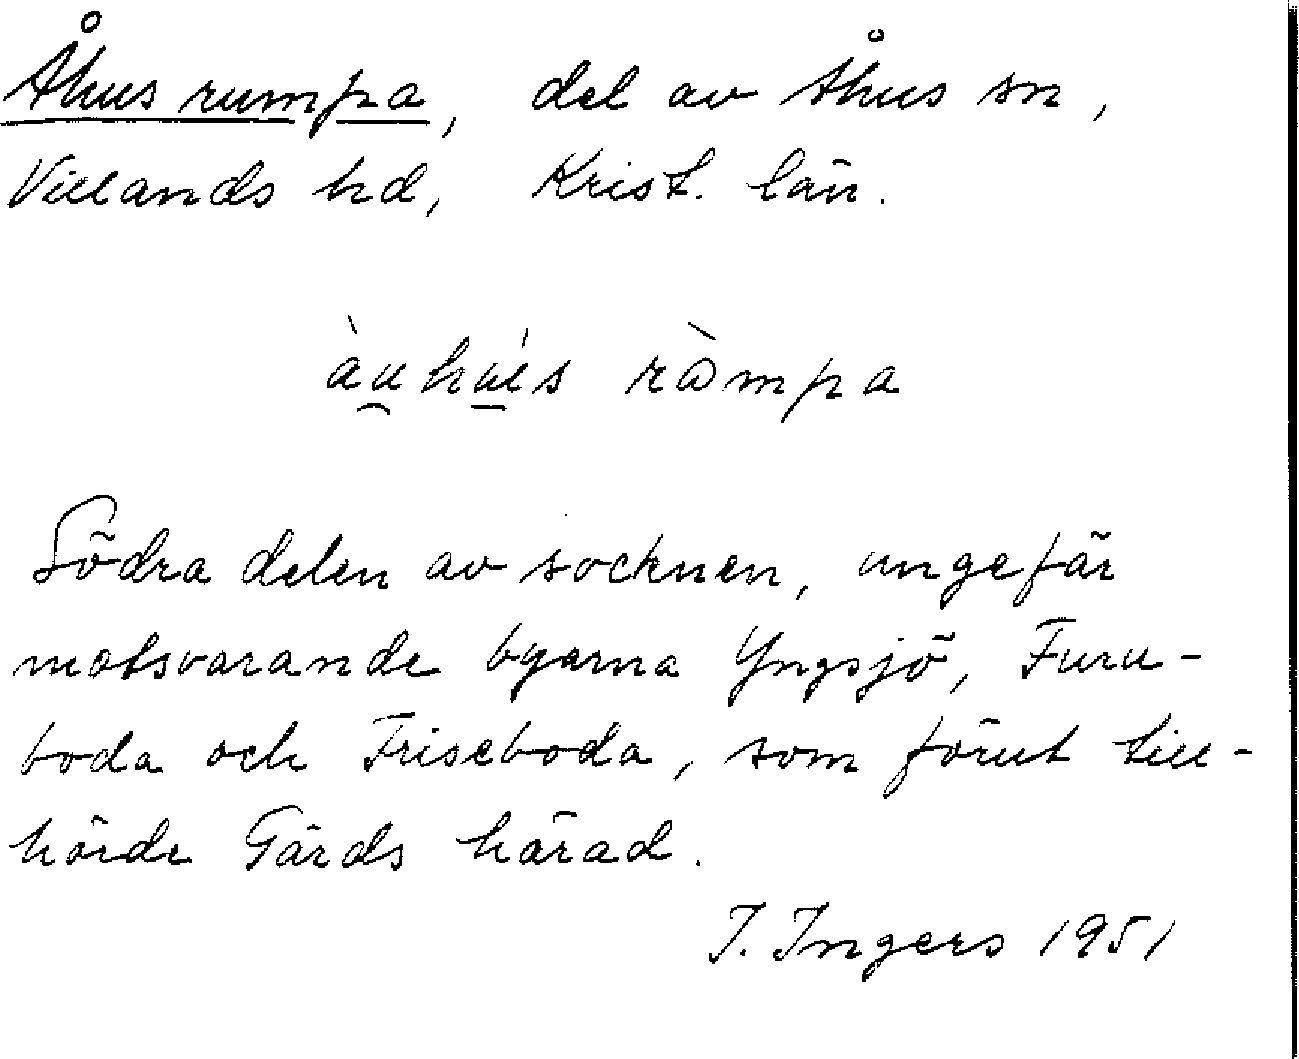 Åhus rumpa, del av Åhus sn,
Villands hd, Krist. län.
àu̯hu̱s ràmpa
Södra delen av socknen, ungefär
motsvarande byarna Yngsjö, Furu-
boda och Friseboda, som förut till-
hörde Gärds härad.
I. Ingers 1951